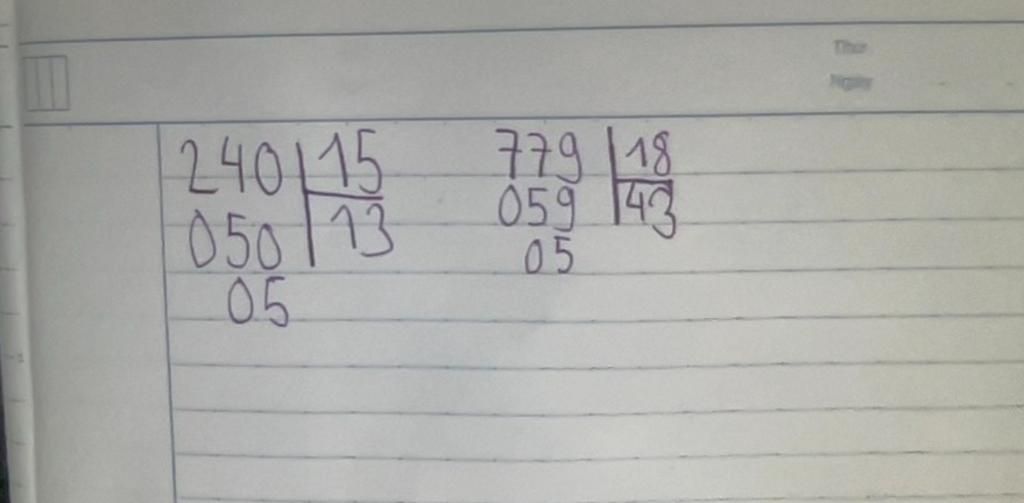 Thứ
Ngày
240 15
050 13
05
779 18
059 43
05